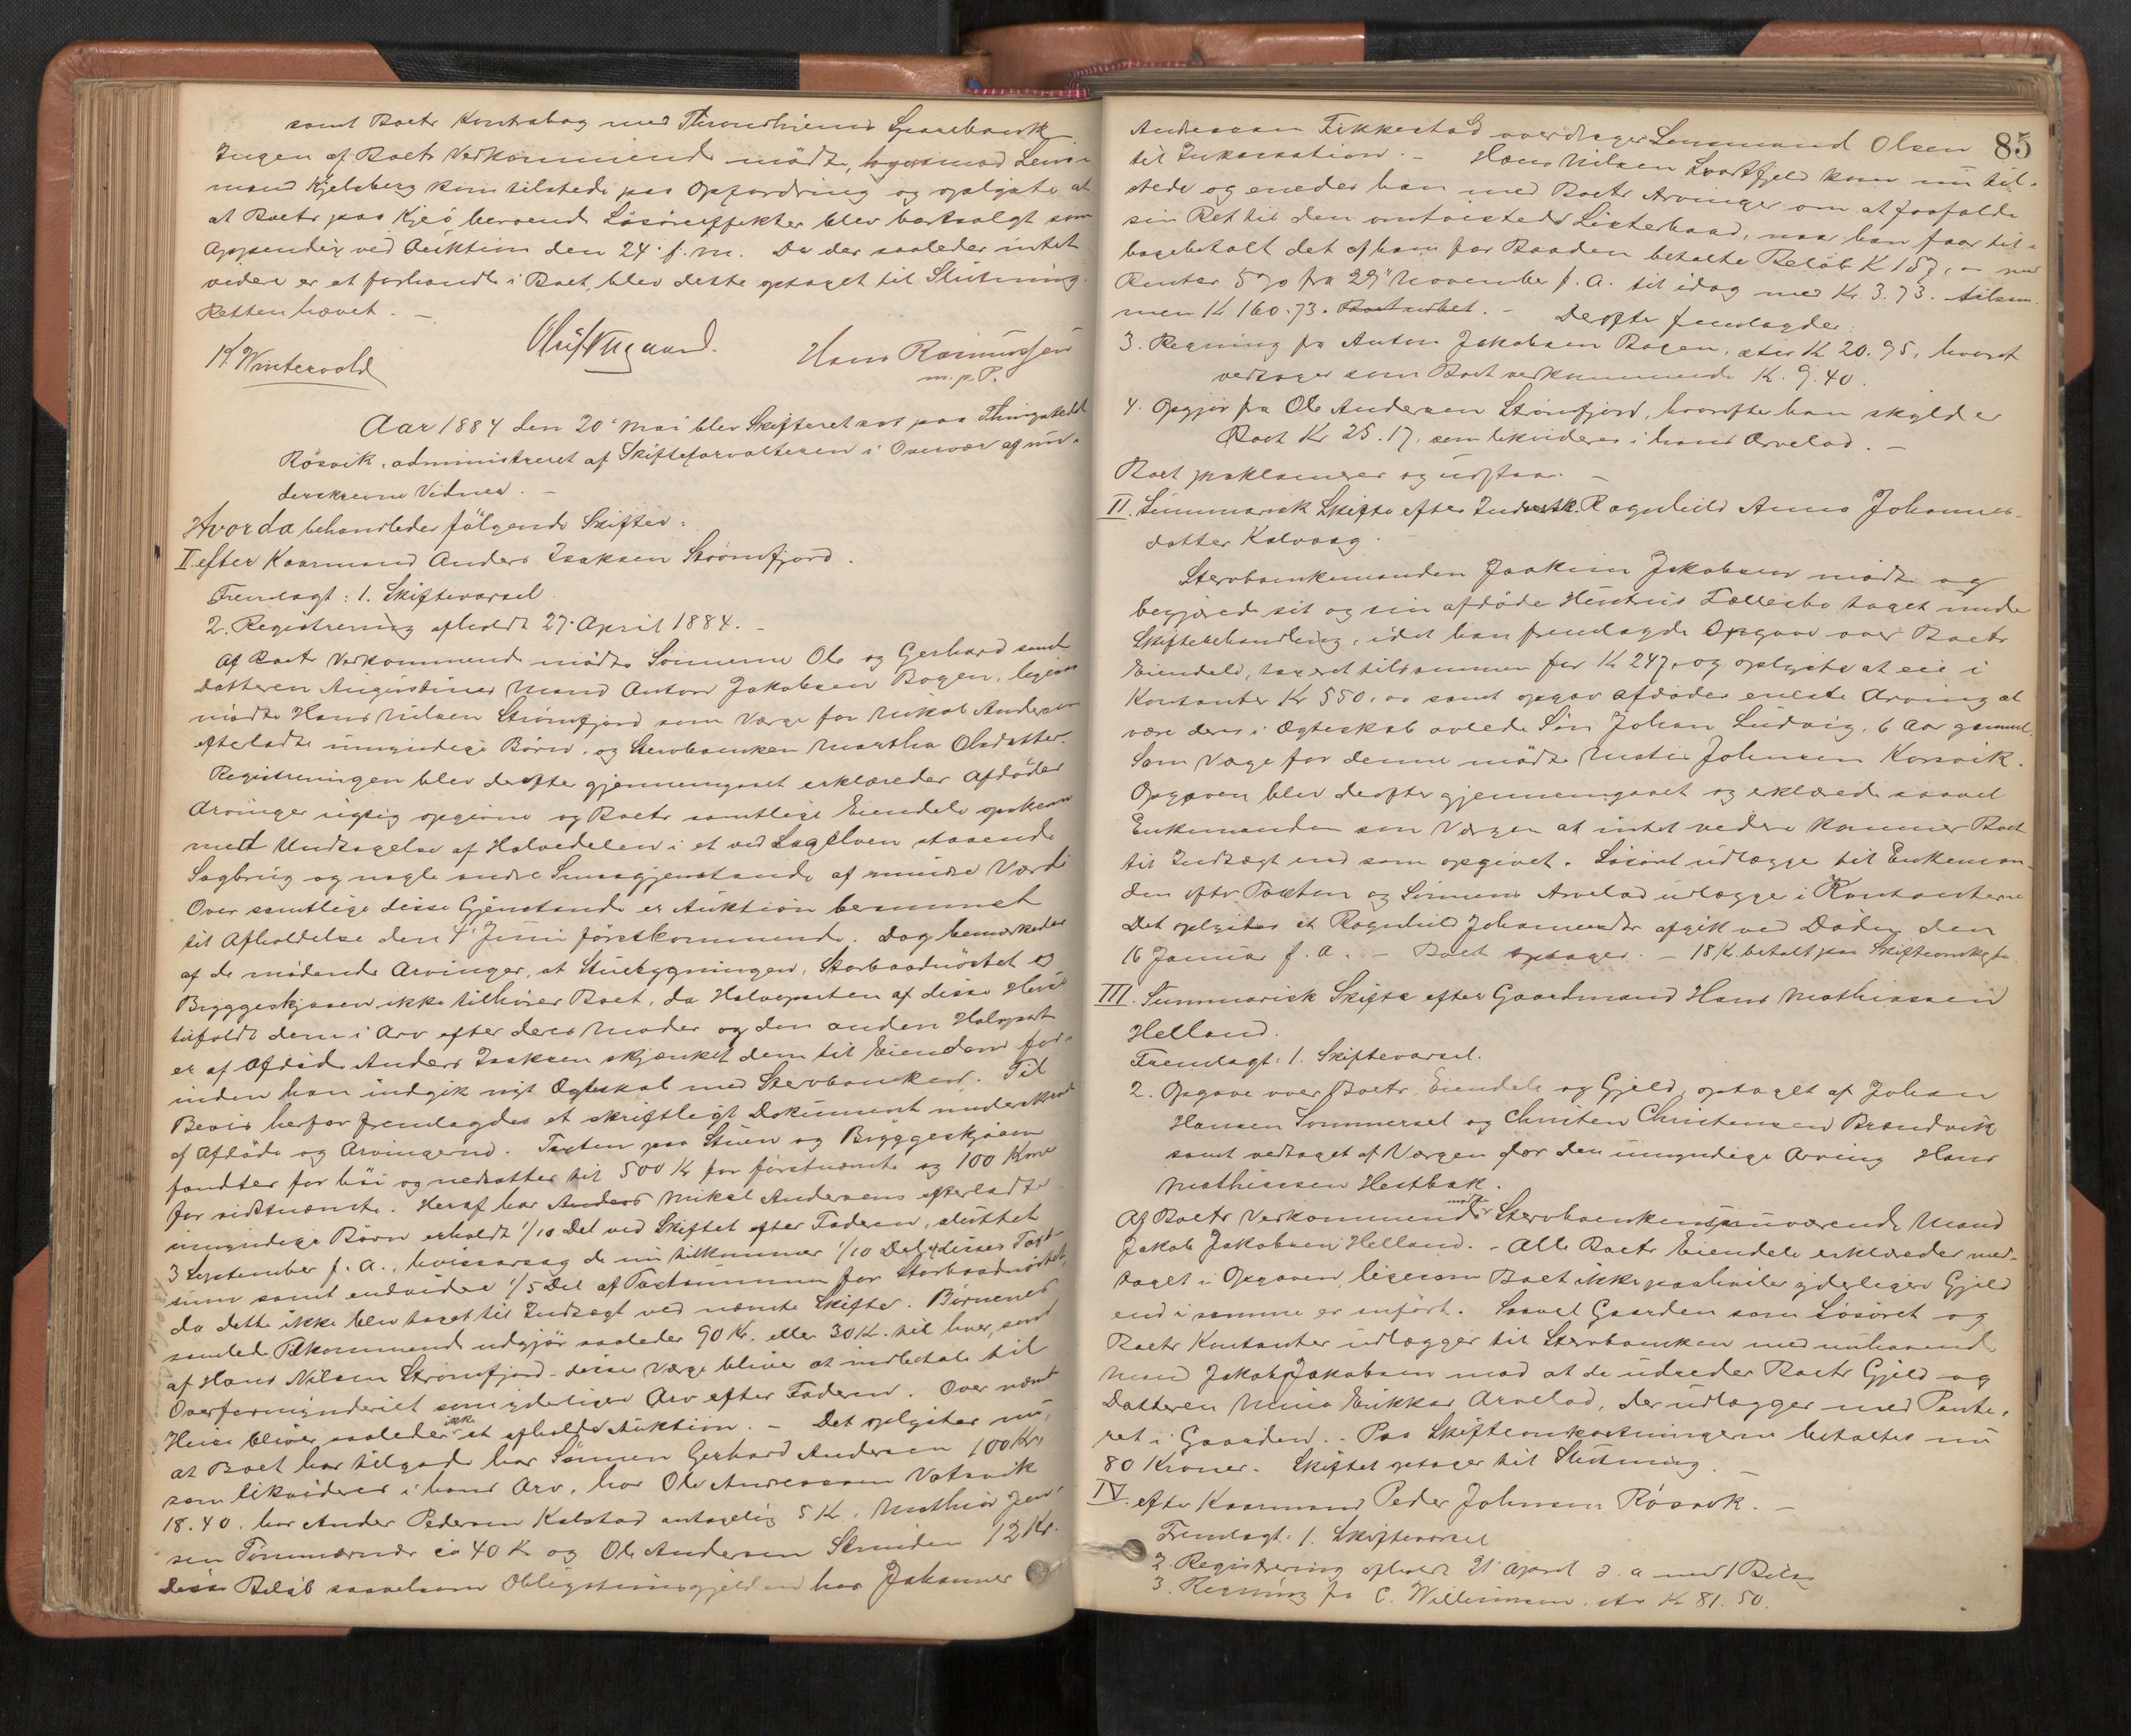 samt Boets Kontrabog med Throndhjems Sparebank
Ingen af Boets Vedkommende mødte, hvorimod Lens-
mand Kjelsberg kom tilstede paa Opfordring og oplyste at
at Boets paa Kjeö beroende Lösöreeffekter blev bortsolgt som
Appendix ved Auktion den 24. f. m. Da der saaledes intet
videre er at forhandle i Boet, blev dette optaget til Slutning.
Retten hævet. —
K. Wintervold
Hans Rasmussen
m. p. P.
Aar 1884 den 20de Mai blev Skifteret sat paa Thingstedet
Rösvik, administreret af Skifteforvalteren i Overvær af un-
derskrevne Vidner. —
Hvorda behandledes fölgende Skifter:
I. efter Kaarmand Anders Isaksen Strömfjord.
Fremlagt: 1. Skiftevarsel.
2. Registrering afholdt 27. April 1884. —
Af Boets Vedkommende mödte Sönnerne Ole og Gerhard samt
Datteren Augustines Mand Anton Jakobsen Bogen, ligesom
mödte Hans Nilsen Strömfjord som Værge for Mikal Andersens
efterladte umyndige Börn, og Stervboenken Martha Olsdatter.
Registreringen blev derefter gjennemgaaet erklæredes Afdödes
Arvinger rigtig opgivne og Boets samtlige Eiendele opskrevne
med Undtagelse af Halvedelen i et ved Lagelven staaende
Sagbrug og nogle andre Smaagjenstande af mindre Værd
Over samtlige disse Gjenstande er Auktion berammet
til Afholdelse den 4. Juni förstkommende. Dog bemærkedes
af de mödende Arvinger, at Stuebygningen, Storbaadnöstet og
Bryggeskjaaen ikke tilhörer Boet, da Halvparten af disse Huse
tilfaldt dem i Arv efter deres Moder og den anden Halvpart
er af Afdöde Anders Isaksen skjænket dem til Eiendom for-
inden han indgik nyt Ægteskab med Stervboenken. Til
Bevis herfor fremlagdes et skriftligt Dokument underskrevet
af Afdöde og Arvingerne. Taxten paa Stuen og Bryggeskjaaen
fandtes for höi og nedsattes til 500 Kr for förstnævnte og 100 Kroner
for sidstnævnte. Heraf har Anders Mikal Andersens efterladte
umyndige Börn erholdt 1/10 Del ved Skiftet efter Faderen, sluttet
3 September f. a., hvisaarsag de nu tilkommer 1/10 Del af disses Taxt-
sum samt endvidere 1/5 Del af Taxtsummen for Storbaadnöstet,
da dette ikke blev taget til Indtægt ved nævnte Skifte. Börnenes
samlede Tilkommende udgjör saaledes 90 Kr. eller 30 Kr. til hver, som
af Hans Nilsen Strömfjord - disses Værge bliver at indbetale til
Overformynderiet som yderligere Arv efter Faderen. Over nævnte
Huse bliver saaledes ikke at afholde Auktion. — Det oplystes nu,
at Boet har tilgode hos Sönnen Gerhard Andersen 100 Kr,
som likvideres i hans Arv, hos Ole Andreassen Vatsvik
18.40. hos Anders Pedersen Kalstad antagelig 5 Kr, Mathias Jen-
sen Tömmernæs ca 40 Kr og Ole Andersen 12 Kr.
Disse Belöb saavelsom Obligationsgjelden hos Johannes
85
Andreassen Fikkestad overdrages Lensmand Olsen
til Inkassation. — Hans Nilsen Svartfjeld kom nu til-
stede og enedes han med Boets Arvinger om at frafalde
sin Ret til den omtvistede Listerbaad, naar han faar til-
bagebetalt det af ham for Baaden betalte Belöb K 157, — med
Renter 5% fra 29de November f. A. til idag med Kr. 3.73. tilsam-
men K 160.73. — Derefter fremlagdes:
3. Regning fra Anton Jakobsen Bogen, stor K 20.95, hvoraf
vedtages som Boet vedkommende K. 9.40.
4. Opgjör fra Ole Andersen Strömfjord, hvorefter han skylder
Boet Kr 25.17, som likvideres i hans Arvelod. —
Boet proklameres og udstaar. —
II. Summarisk Skifte efter Inderstk. Ragnhild Anna Johannes-
datter Kalvaag.
Stervboenkemanden Joakim Jakobsen mödte og
begjærede sit og sin afdöde Hustrus Fællesbo taget under
Skiftebehandling, idet han fremlagde Opgave over Boets
Eiendele, taxeret tilsammen for K 247, og oplyste at eie i
Kontanter Kr 550,00 samt opgav afdödes eneste Arving at
være deres i Ægteskab avlede Sön Johan Ludvig, 6 Aar gammel.
Som Værge for denne mödte Mathis Johnsen Korsvik.
Opgaven blev derefter gjennemgaaet og erklærede saavel
Enkemanden som Værgen at intet videre kommer Boet
til Indtægt end som opgivet. Lösöret udlægges til Enkeman-
den efter Taxten og Sönnens Arvelod udlægges i Kontanterne
Det oplystes at Ragnhild Johannesdtr afgik ved Döden den
16 Januar f. A. — Boet optages. — 18 K. betalt paa Skifteomkostn.
III. Summarisk Skifte efter Gaardmand Hans Mathiassen
Helland.
Fremlagt: 1. Skiftevarsel.
2. Opgave over Boets Eiendele og Gjeld, optaget af Johan
Hansen Sommersel og Christen Christensen Brændvik
samt vedtaget af Værgen for den umyndige Arving Hans
Mathiassen Hestbak.
Af Boets Vedkommende mödte Stervboenkens nuværende Mand
Jakob Jakobsen Helland. - Alle Boets Eiendele erklæredes med-
taget i Opgaven, ligesom Boet ikke paahviler yderligere Gjeld
end i samme er anfört. Saavel Gaarden som Lösöret og
Boets Kontanter udlægges til Stervboenken med nuhavende
Mand Jakob Jakobsen mod at de udreder Boets Gjeld og
Datteren Mina Erikkas Arvelod, der udlægges med Pante-
ret i Gaarden. - Paa Skifteomkostningerne betaltes nu
80 Kroner. Skiftet optages til Slutning. —
IV. efter Kaarmand Peder Johnsen Rösvik. —
Fremlagt: 1. Skiftevarsel
2. Registrering afholdt 21 April d. a med 1 Bilag
3. Regning fra C. Willumsen, stor K 81.50.